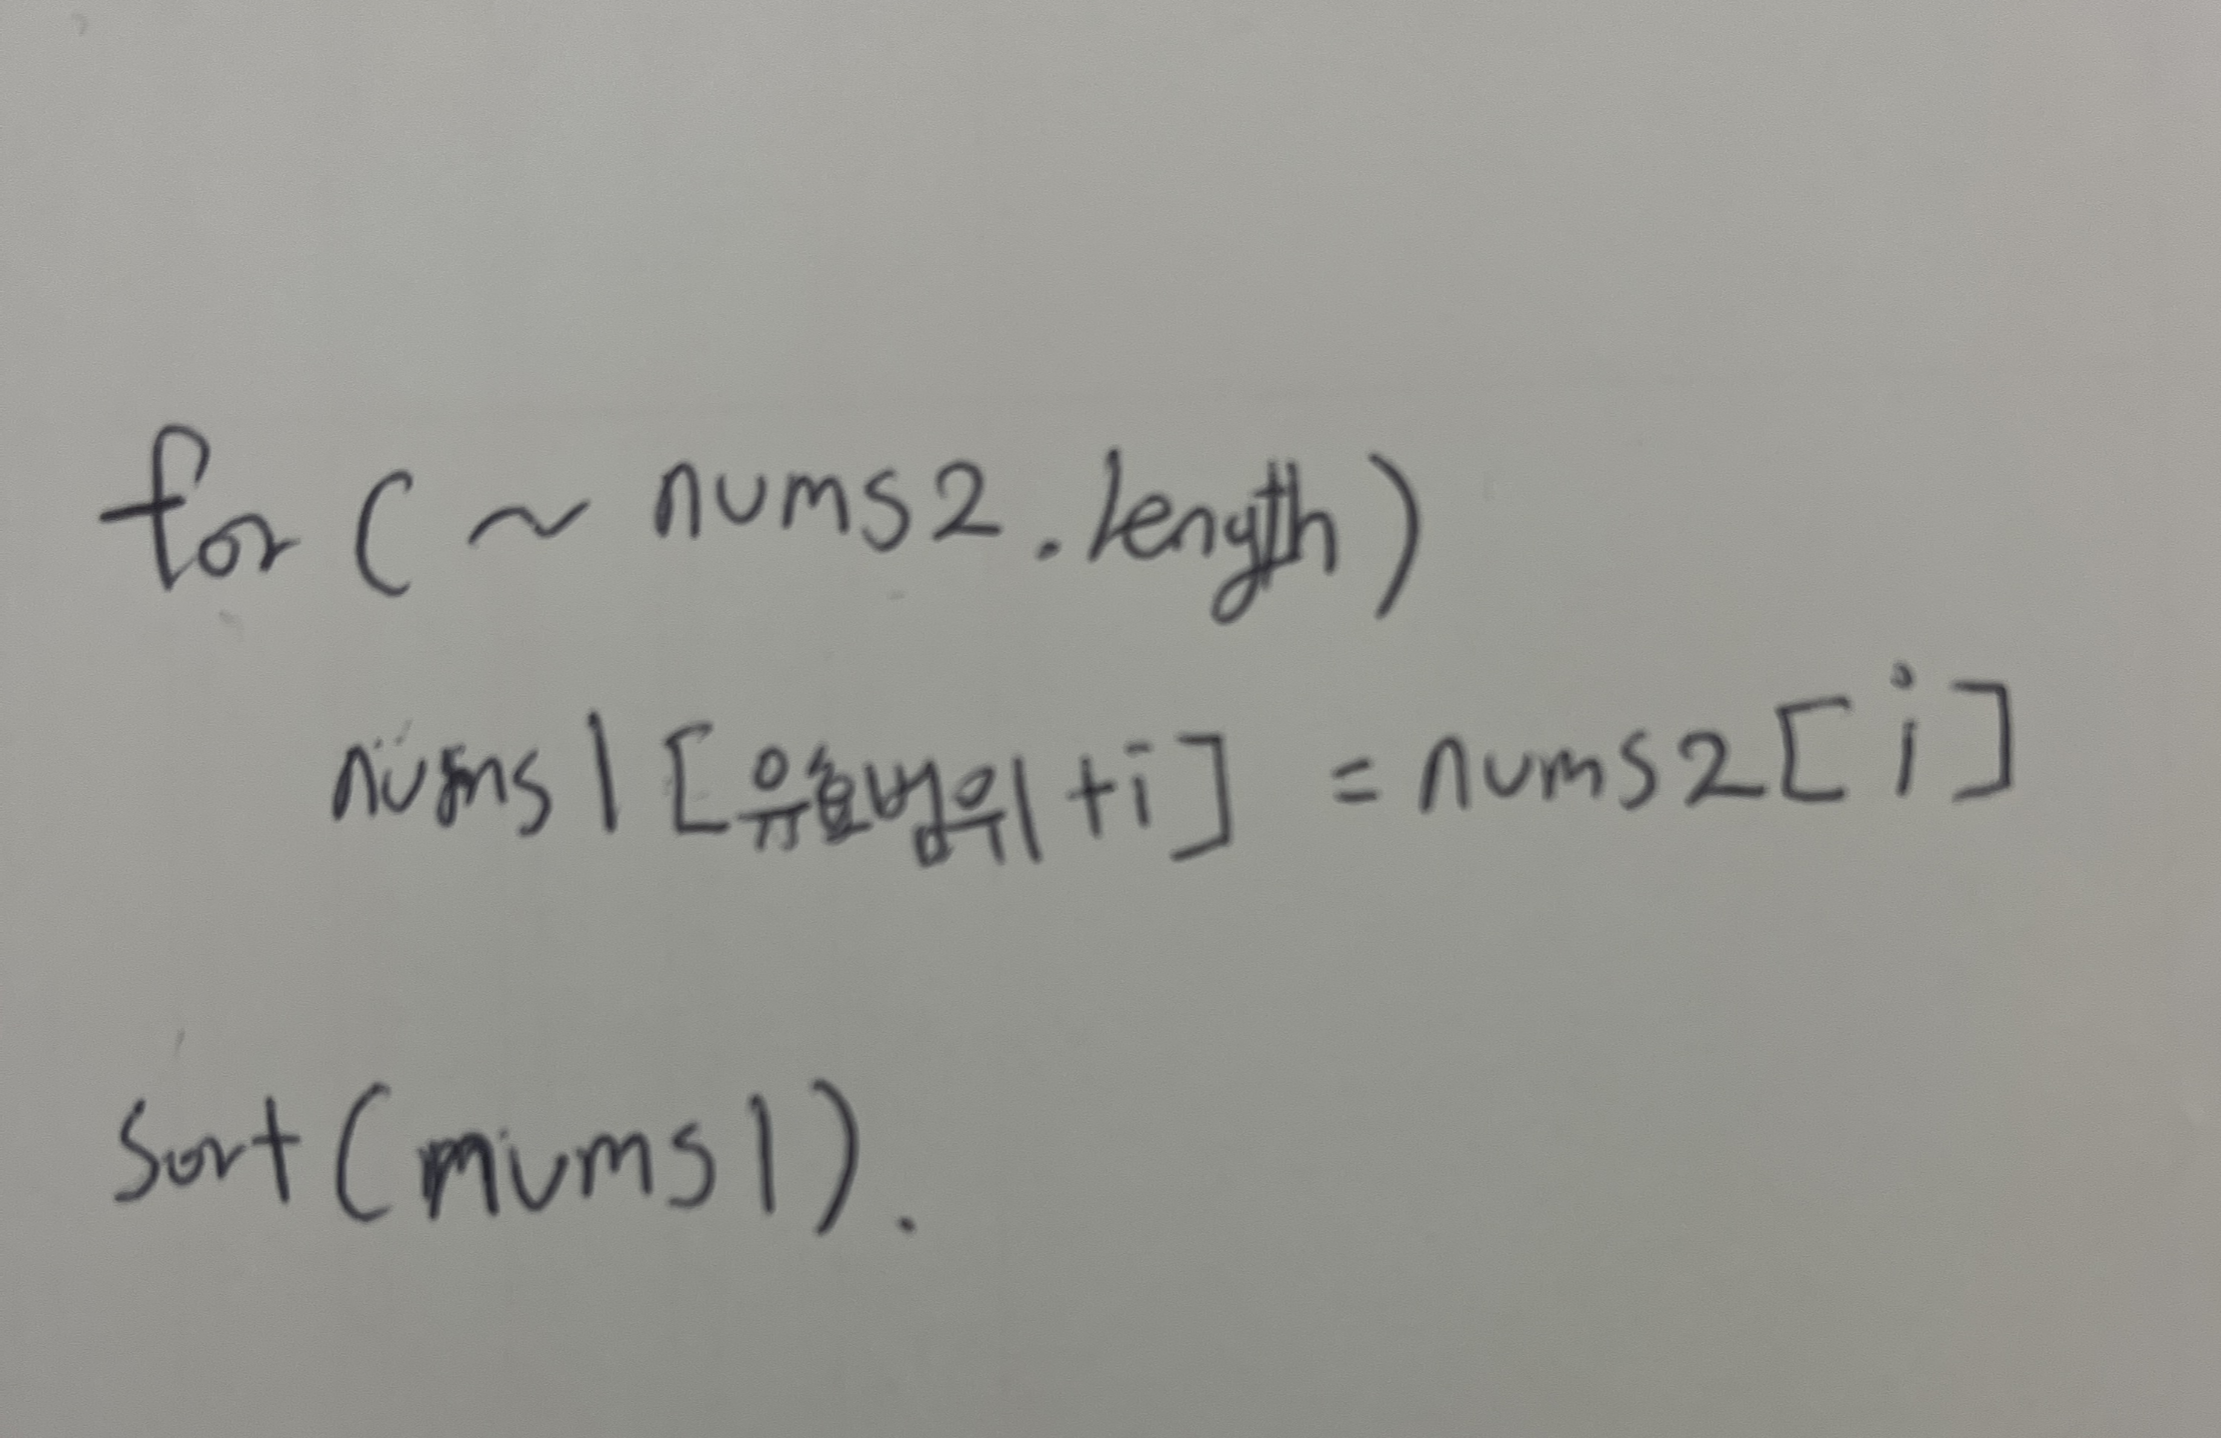 for ( ~ nums2.length)
nums1[유효범위+i] = nums2[i]
sort(nums1).